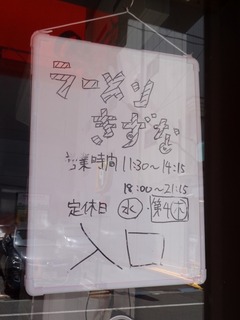 ラーメン
きずな
営業時間 11:30～14:15
18:00～21:15
定休日 水・第4木
入口